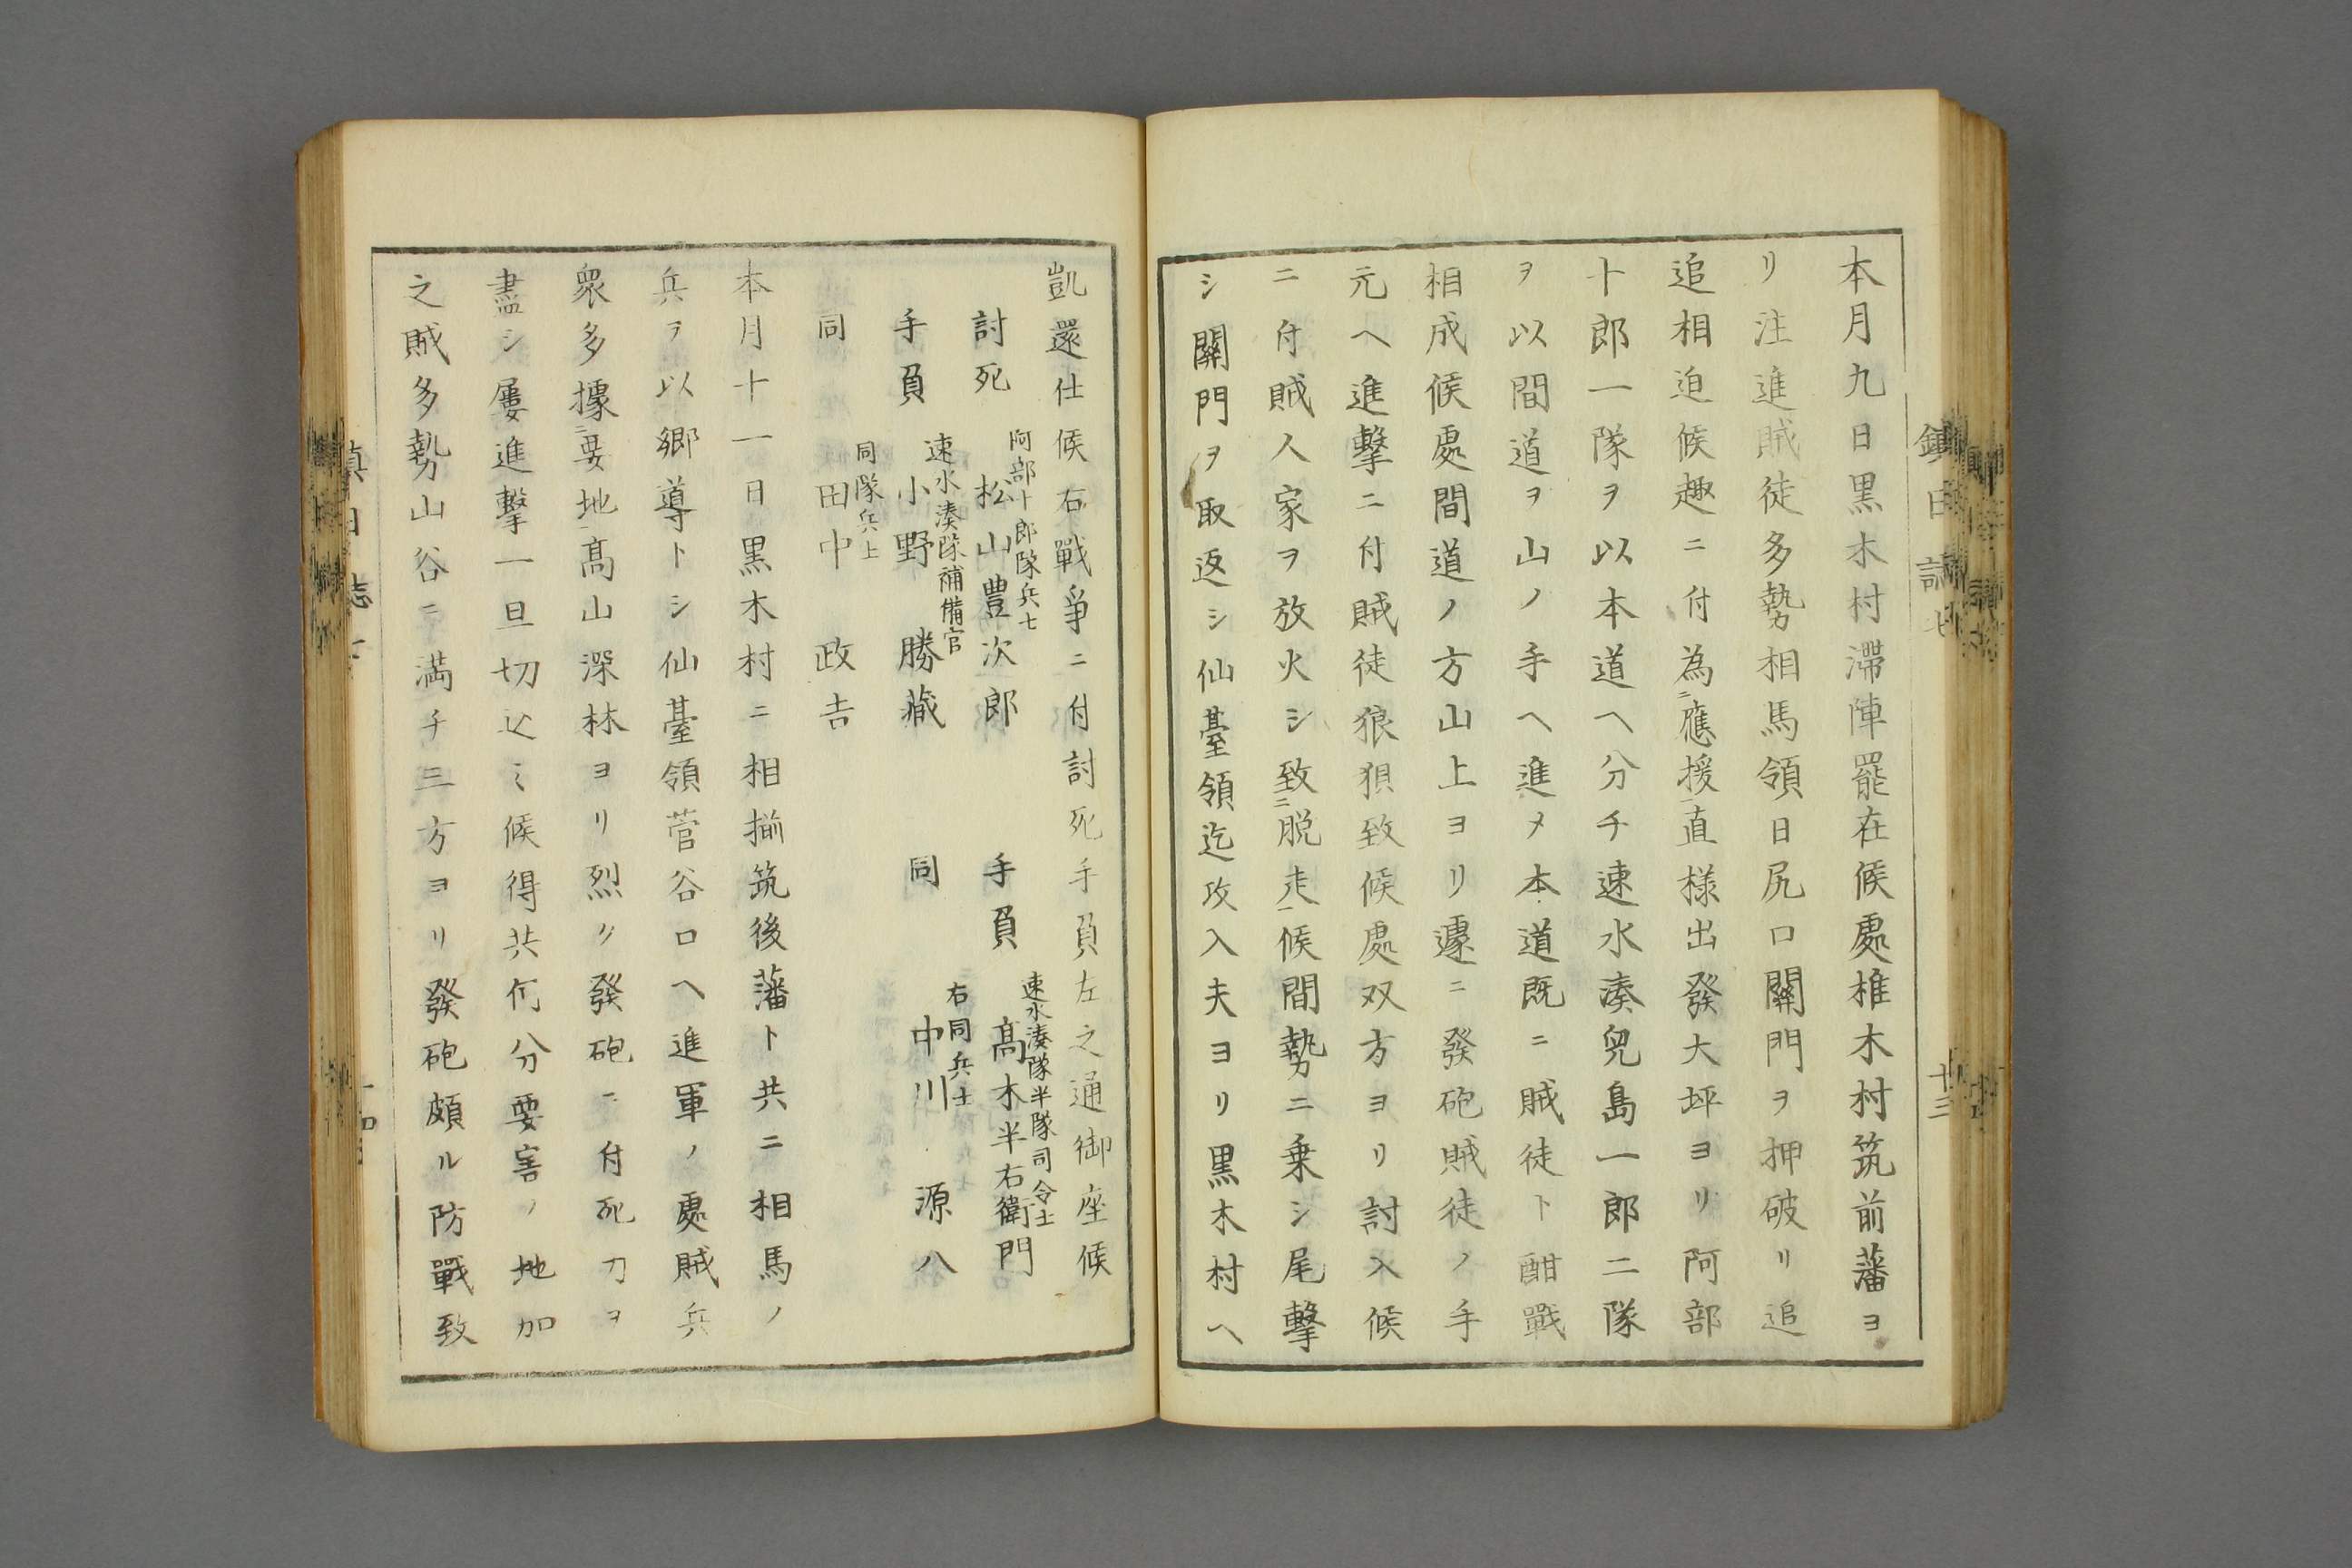 本月九日黒木村滯陣罷在候處椎木村筑前藩ヨ
リ注進賊徒多勢相馬領日尻口關門ヲ押破リ追
追相迫候趣ニ付為ニ應援一直樣出發大坪ヨリ阿部
十郎一隊ヲ以本道ヘ分チ速水湊兒島一郎二隊
ヲ以間道ヲ山ノ手ヘ進メ本道既ニ賊徒ト酣戰
相成候處間道ノ方山上ヨリ遽ニ發砲賊徒ノ手
元ヘ進擊ニ付賊徒狼狽致候處双方ヨリ討入候
ニ付賊人家ヲ放火シ致ニ脱走一候間勢ニ乗シ尾擊
シ關門ヲ取返シ仙臺領迄攻入夫ヨリ黒木村ヘ
鎮日誌七
十三
凱還仕候右戰爭ニ付討死手負左之通御座候
阿部十郎隊兵士
討死 松山豊次郎
速水湊隊半隊司令士
手負 髙木半右衛門
速水湊隊補備官
手負 小野勝藏
右同兵士
同 中川源八
同隊兵士
同 田中政吉
本月十一日黒木村ニ相揃筑後藩ト共ニ相馬ノ
兵ヲ以鄉導トシ仙臺領菅谷口ヘ進軍ノ處賊兵
衆多據ニ要地一髙山深林ヨリ烈ク發砲ニ付死力ヲ
盡シ屢進擊一旦切込ミ候得共何分要害ノ地加
之賊多勢山谷ニ満チ三方ヨリ發砲頗ル防戰致